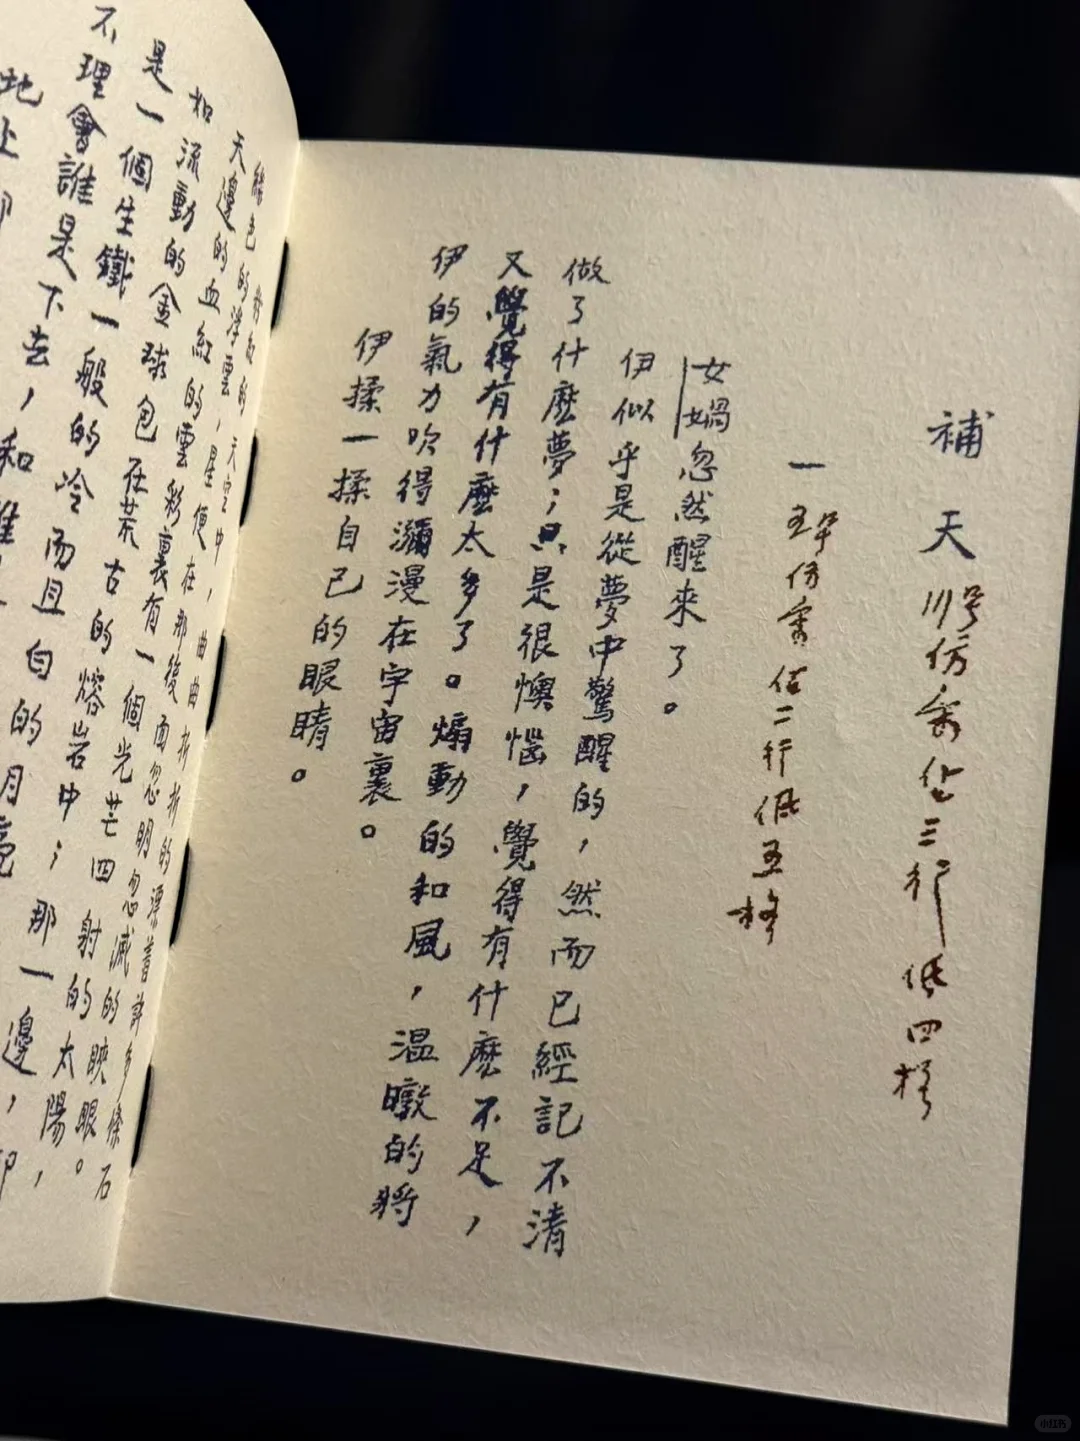 補天 〣号仿宋佔三行低四格
一 五号仿宋佔二行低五格
女媧忽然醒來了。
伊似乎是從夢中驚醒的,然而已經記不清
做了什麽夢;只是很懊惱,覺得有什麽不足,
又覺得有什麽太多了。煽動的和風,温暾的將
伊的氣力吹得瀰漫在宇宙裏。
伊揉一揉自己的眼睛。
粉紅的天空中,曲曲折折的漂着許多條石
綠色的浮雲,星便在那後面忽明忽滅的䀹眼。
天邊的血紅的雲彩裏有一個光芒四射的太陽,
如流動的金球包在荒古的熔岩中;那一邊,卻
是一個生鐵一般的冷而且白的月亮
不理會誰是下去,和誰
地上